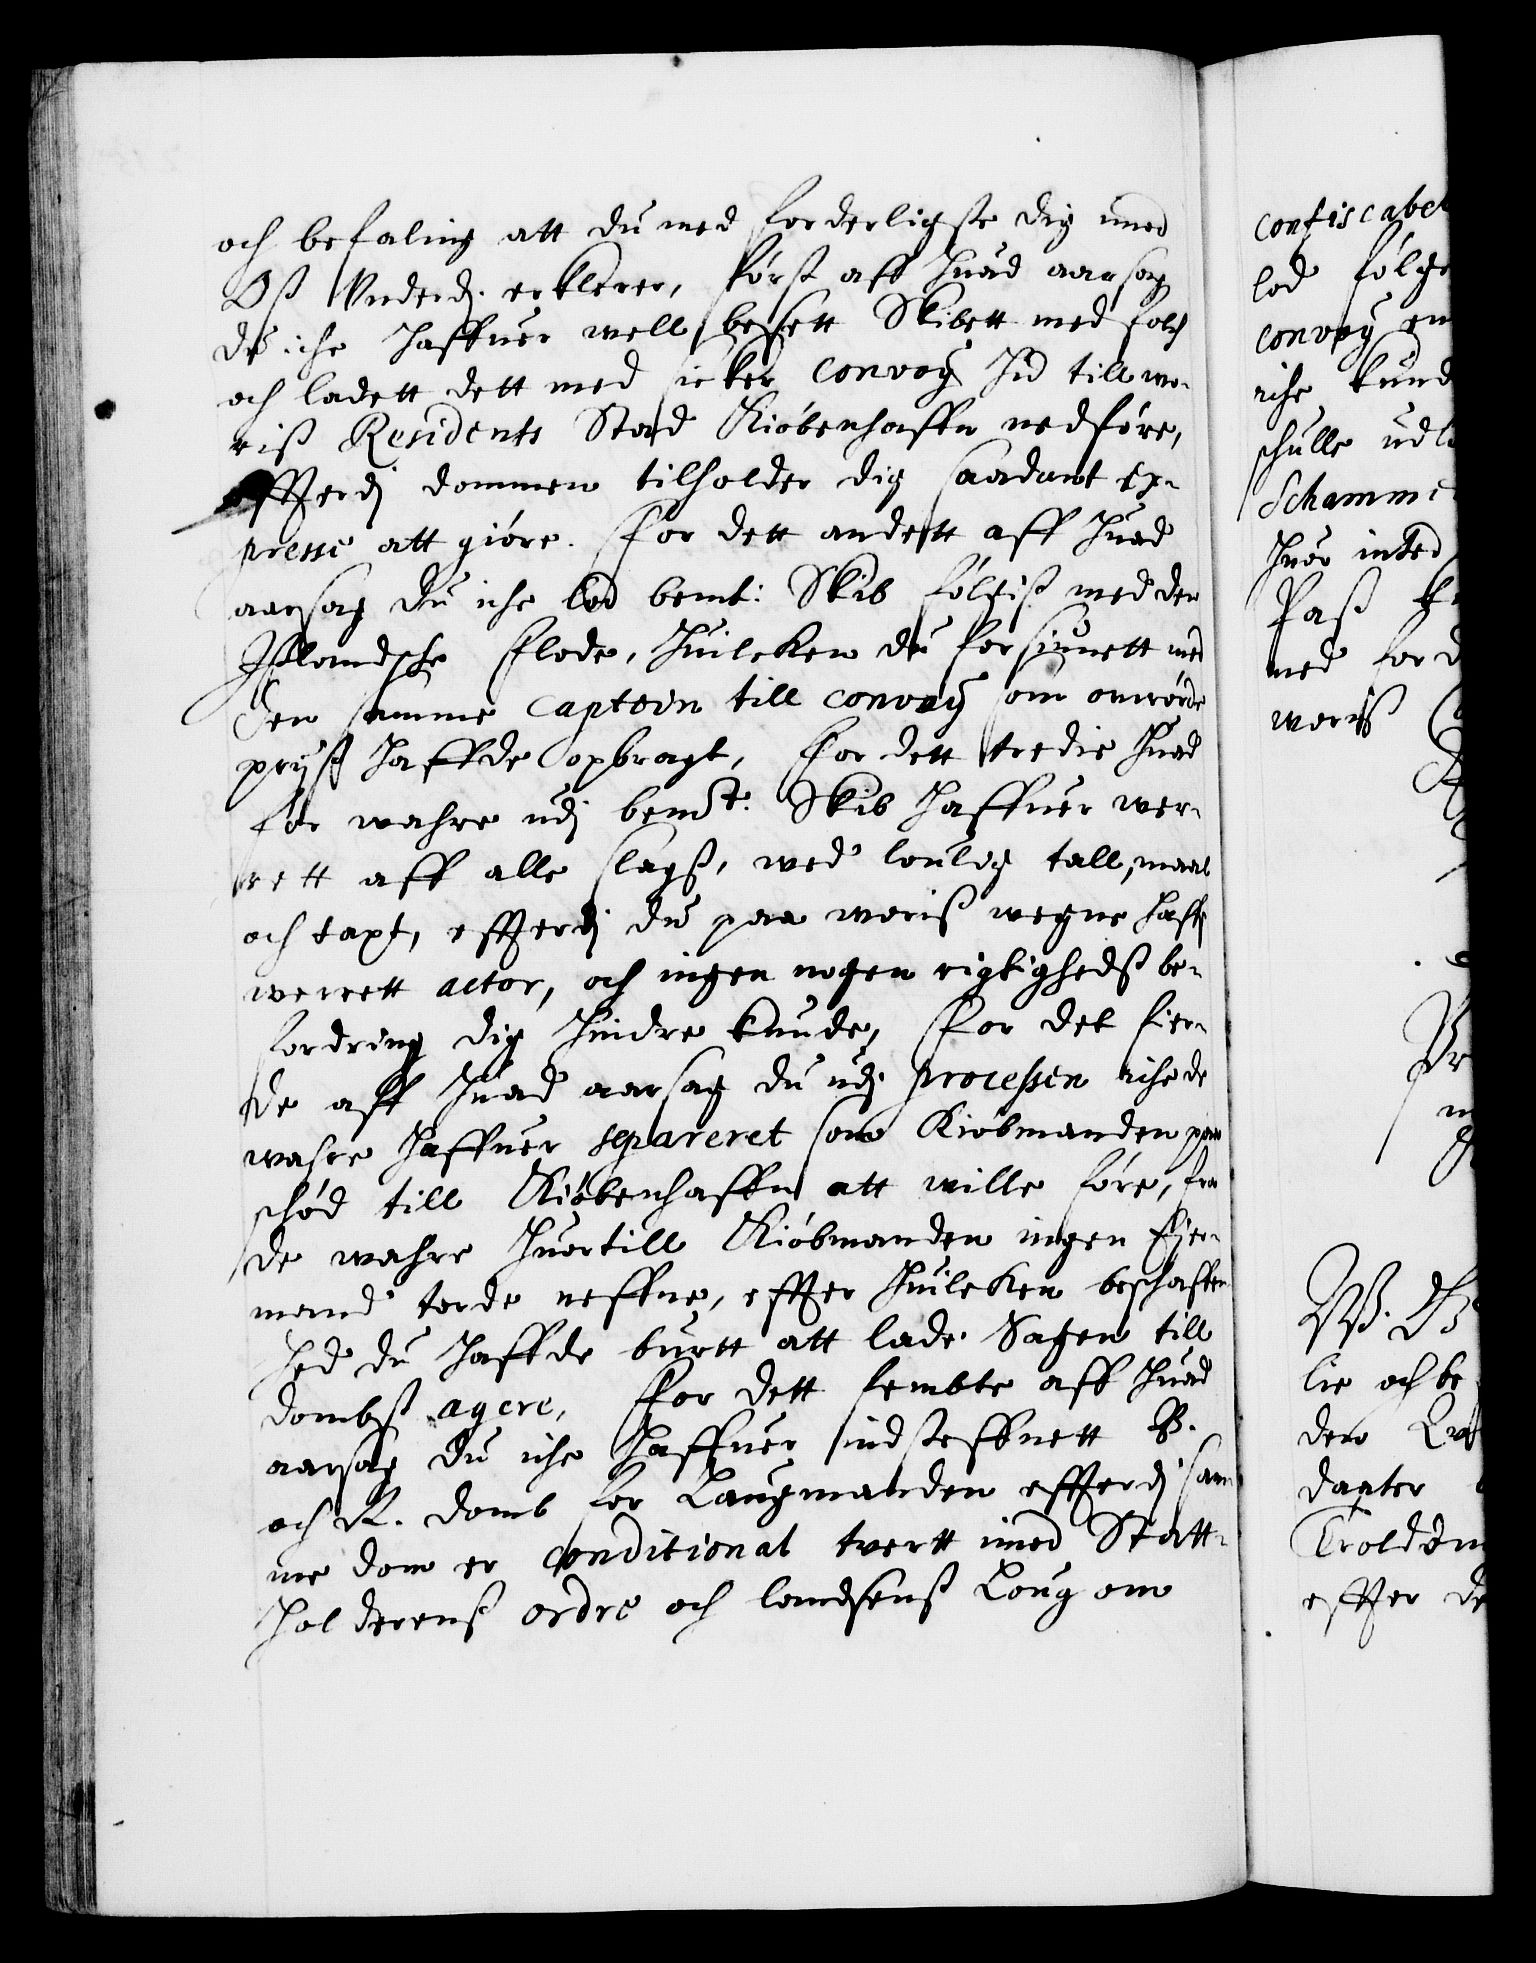 och befaling att du med forderligste dig imod
Oß Underd. erklerer, først aff huad aarsag
du iche haffuer well besett Skibett med folch
och ladett dett med sicker convoy hid till wo-
riß Residents Stad Kiøbenhaffn nedføre,
effterdj dommen tilholder dig saadant ex-
presse att giøre. For dett andett aff huad
aarsag du iche lod bemt: Skib følgiß med den
Ißlandsche flode, huilcken du forsiunett med
den samme Captein till convoy som omrørde
pryß haffde opbragt, For dett tredie huad
for wahre udj bemt: Skib haffuer wer-
rett aff alle slagß, wed loulig tall, maal
och taxt, effterdj du paa woriß wegne haffr
werrett actor, och ingen nogen rigtighedß be-
fordring dig hindre kunde, For det fier-
de aff huad aarsag du udj processen iche de
wahre haffuer separeret som Kiøbmanden paa
schød till Kiøbenhaffn att wille føre, fra
de wahre huortill Kiøbmanden ingen Ejer-
mand torde neffne, effter huilcken beschaffen-
hed du haffde burtt att lade Sagen till
dombß agere, For dett fembte aff huad
aarsag du iche haffuer indsteffnett B.
och R. domb for Laugmanden effterdj sam-
me dom er conditional twert imod Statt-
holderenß ordre och landsenß Loug om
confiscabel
lod følge
convoy
iche kund
schulle udl
Schamme
huor inted
Paß
med ford
woriß
lie och be
den
danter
Troldom
effter de